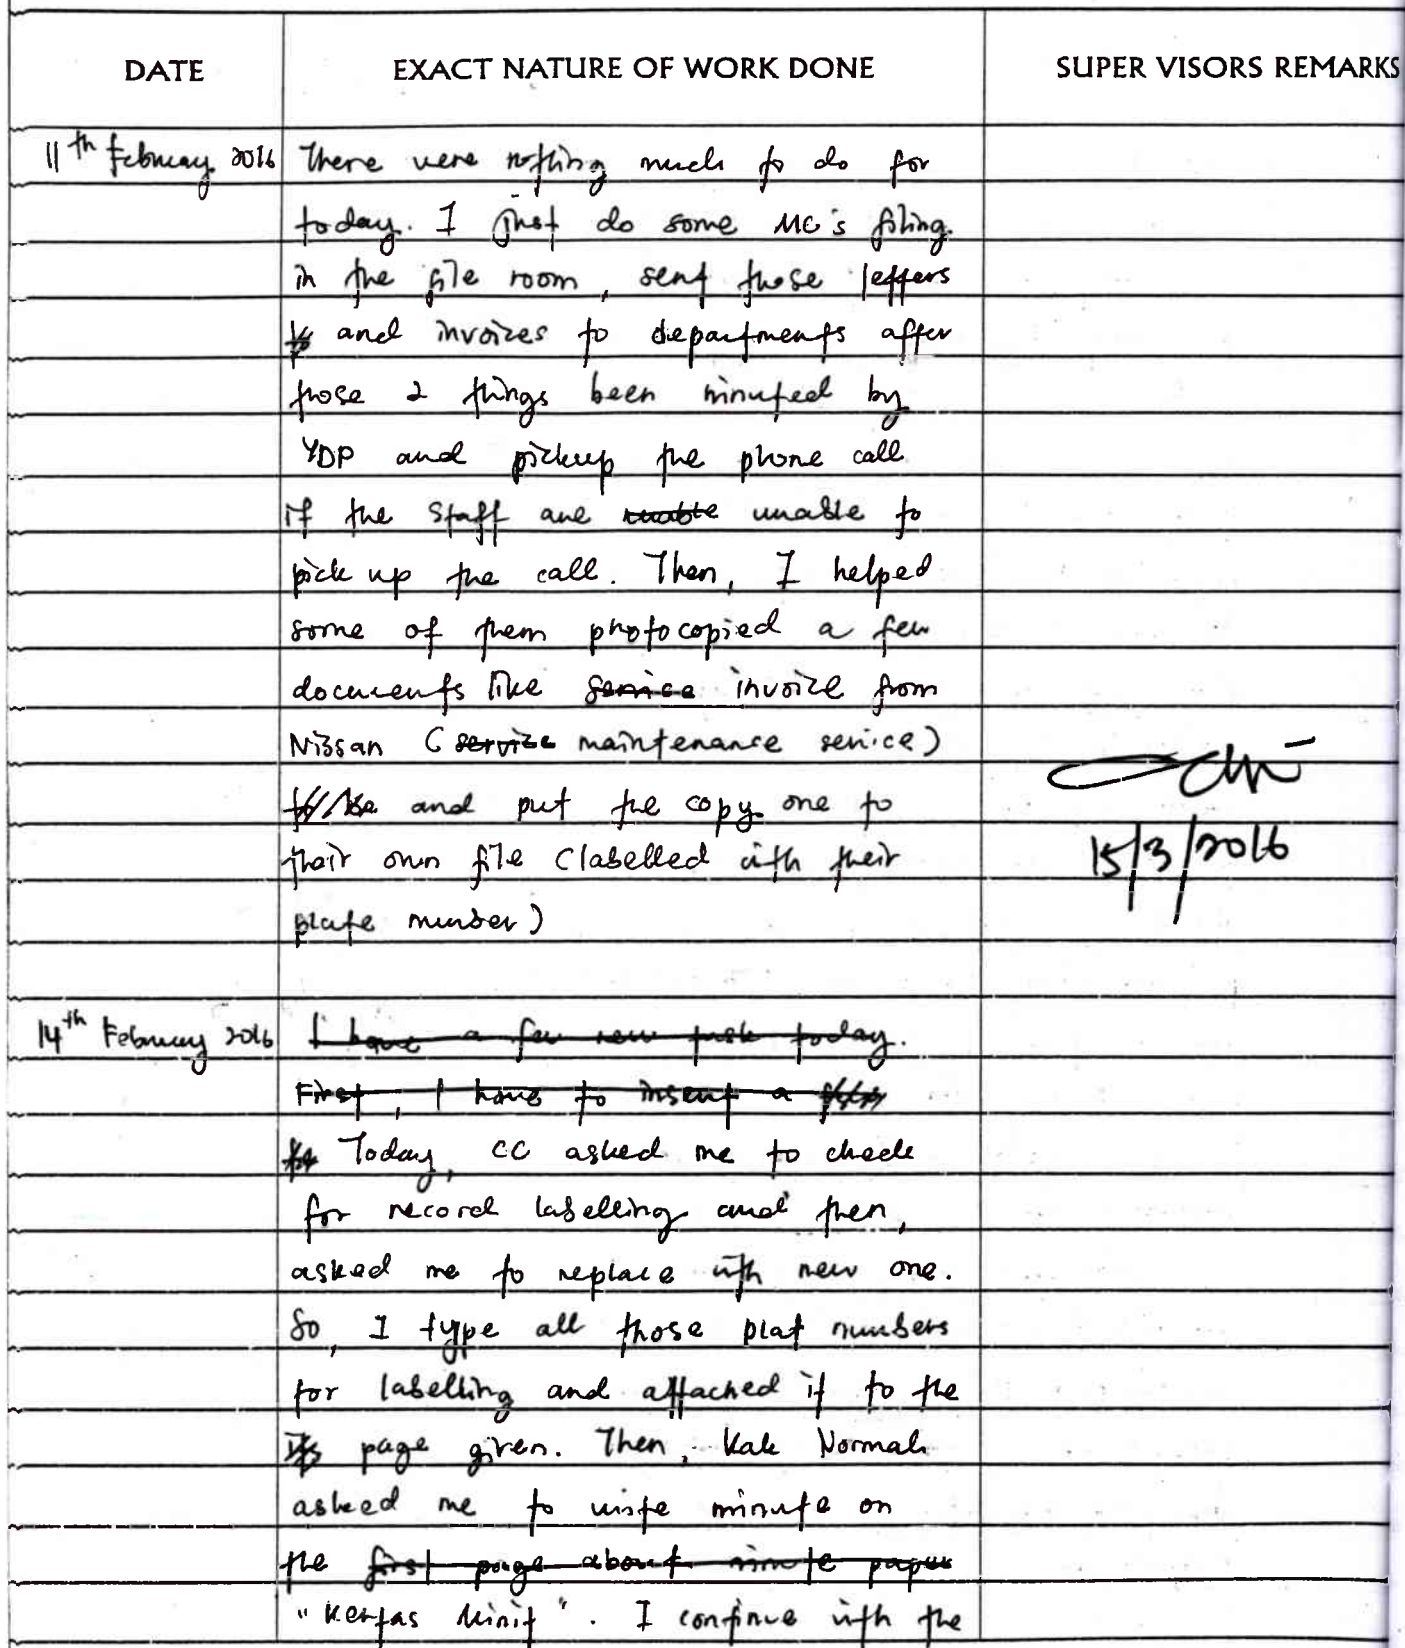 DATE EXACT NATURE OF WORK DONE SUPER VISORS REMARKS
11th February 2016 There were nothing much to do for
today. I just do some MC's filing
in the file room, sent those letters
and invoices to departments after
those 2 things been minuted by
YDP and pickup the phone call
if the staff are unable unable to
pick up the call. Then, I helped
some of them photocopied a few
documents like service invoice from
Nissan (service maintenance service)
and put the copy one to
their own file (labelled with their
plate number)
15/3/2016
14th February 2016 I have a few new task today.
First, I have to insert a
Today, CC asked me to check
for record labelling and then,
asked me to replace with new one.
So, I type all those plat numbers
for labelling and attached it to the
page given. Then, Kak Normah
asked me to write minute on
the first page about minute paper
"Kertas Minit". I continue with the